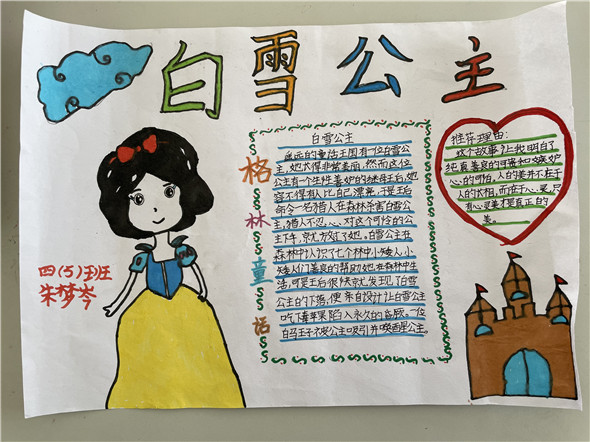 白雪公主
格林童话
白雪公主
遥远的童话王国有一位白雪公
主,她长得非常美丽,然而这位
公主有个生性善妒的继母王后,她
容不得有人比自己漂亮,于是王后
命令一名猎人在森林杀害白雪公
主,猎人不忍心对这个可怜的公
主下手,就放过了她。白雪公主在
森林中认识了七个林中小矮人,小
矮人们善良的帮助她在森林中生
活,可是王后很快就发现了白雪
公主的下落,便亲自设计让白雪公主
吃下毒苹果陷入永久的昏厥。一位
白马王子被公主吸引并唤醒公主。
推荐理由:
这个故事让我明白了
纯真善良的可贵和嫉妒
心的可怕,人的美并不在于
人的长相,而在于心灵,只
有心灵美才是真正的
美。
四(5)班
朱梦岑